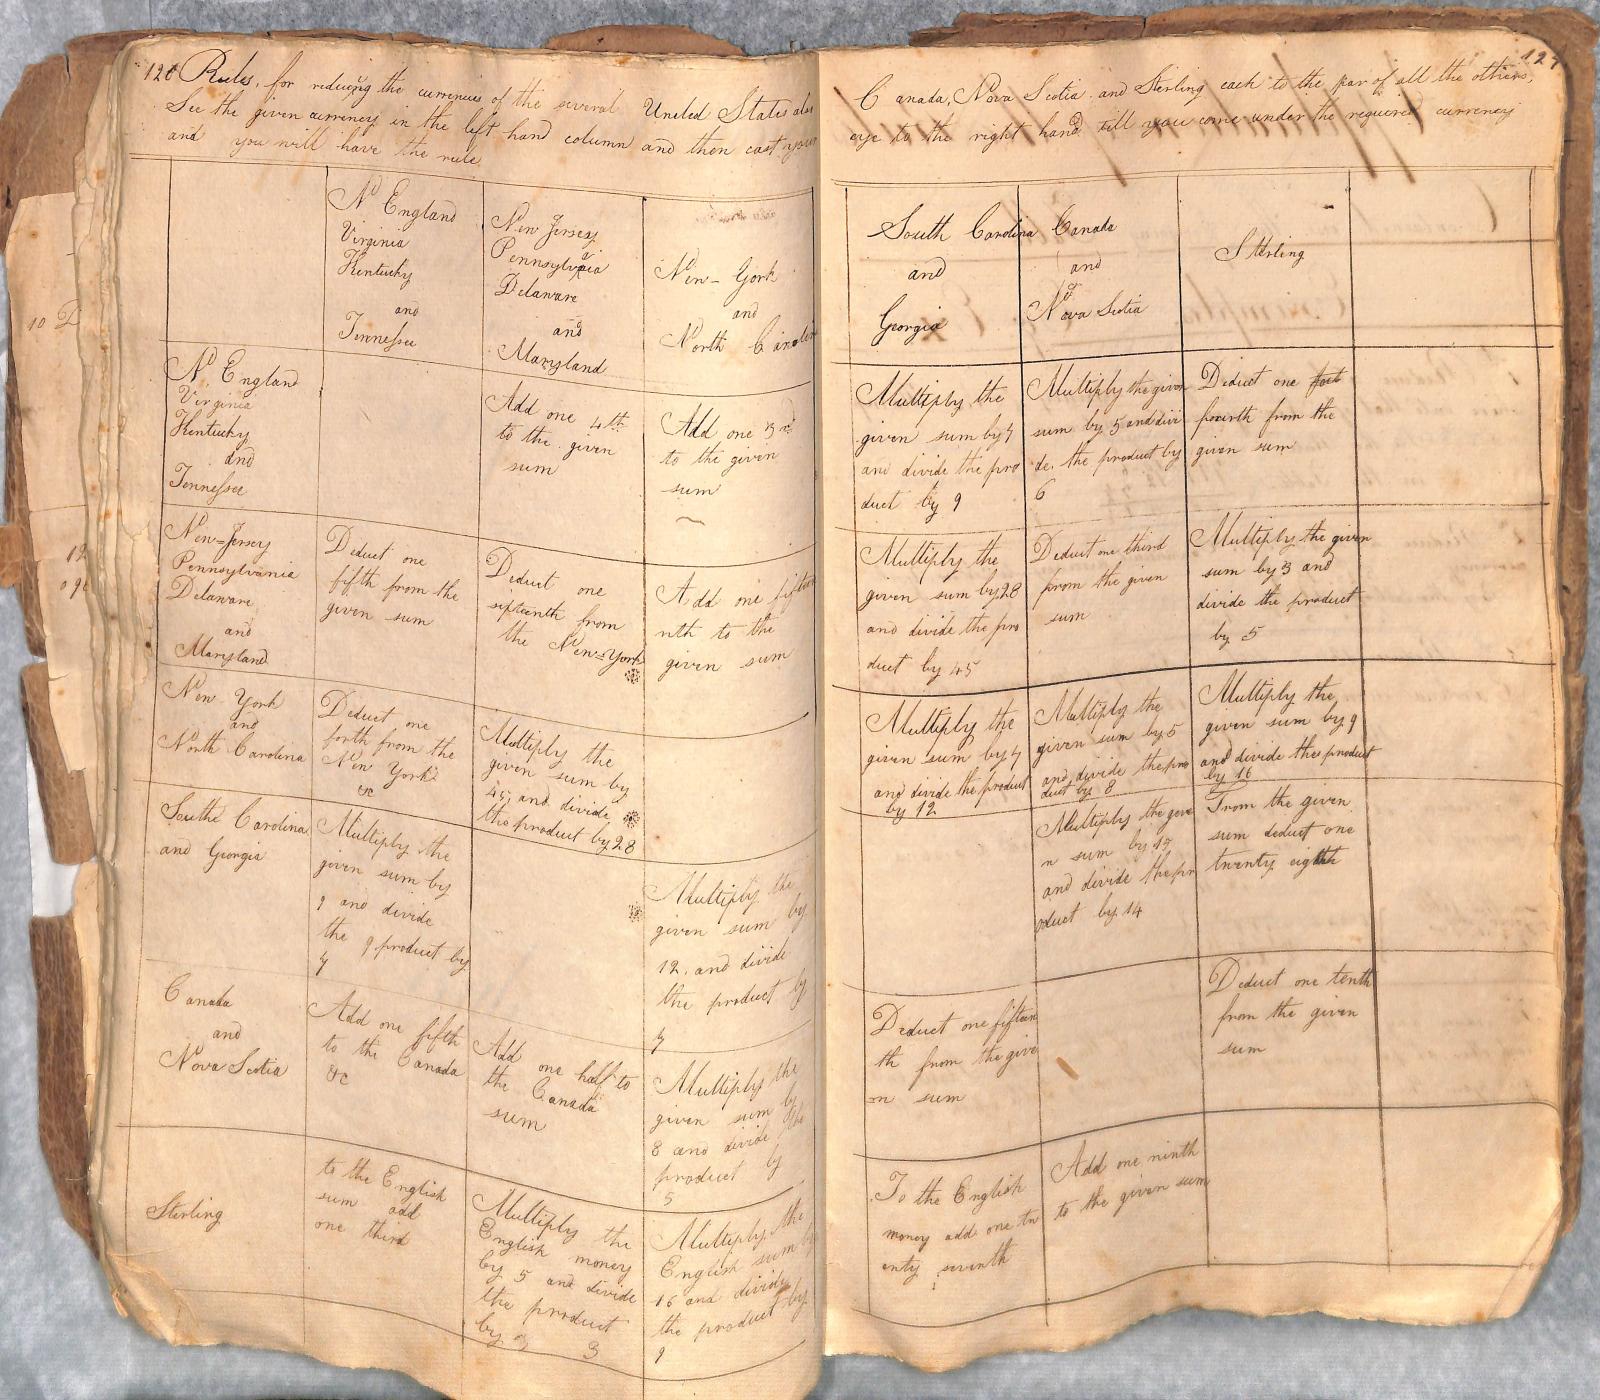 126 Rules, for reducing the currencies of the several United States also
See the given currency in the left hand column and then cast your
and you will have the rule
Nd England
Virginia
Kentucky
and
Tennessee
New Jersey
Pennsylvania
Delaware
and
Maryland
New-York
and
North Carolin
Nd England
Virginia
Kentucky
and
Tennessee
Add one 4th
to the given
sum
Add one 3rd
to the given
sum
New=Jersey
Pennsylvania
Delaware
and
Maryland
Deduct one
fifth from the
given sum
Deduct one
sixteenth from
the New=York
Add one fiftee
nth to the
given sum
New York
and
North Carolina
Deduct one
forth from the
New York
&c
Multiply the
given sum by
45, and divide
the product by 28
Southe Carolina
and Georgia
Multiply the
given sum by
9 and divide
the 9 product by
7
Multiply the
given sum by
12, and divide
the product by
7
Canada
and
Nova Scotia
Add one fifth
to the Canada
&c
Add
one half to
the Canada
sum
Multiply the
given sum by
8 and divide the
product by
5
Sterling
to the English
sum add
one third
Multiply the
English money
by 5 and divide
the product
by 3
3
Multiply the
English sum by
16 and divide
the product by
9
127
Canada, Nova Scotia and Sterling each to the par of all the others,
eye to the right hand till you come under the required currency
South Carolina
and
Georgia
Canada
and
Nova Scotia
Sterling
Multiply the
given sum by 7
and divide the pro
duct by 9
Multiply the given
sum by 5 and divi
de, the product by
6
Deduct one
fourth from the
given sum
Multiply the
given sum by 28
and divide the pro
duct by 45
Deduct one third
from the given
sum
Multiply the given
sum by 3 and
divide the product
by 5
Multiply the
given sum by 7
and divide the product
by 12
Multiply the
given sum by 5
and divide the pro
duct by 8
Multiply the
given sum by 9
and divide the product
by 16
Multiply the give
n sum by 15
and divide the pr
oduct by 14
From the given
sum deduct one
twenty eighth
Deduct one fifteen
th from the give
n sum
Deduct one tenth
from the given
sum
To the English
money add one tw
enty seventh
Add one ninth
to the given sum
10
12